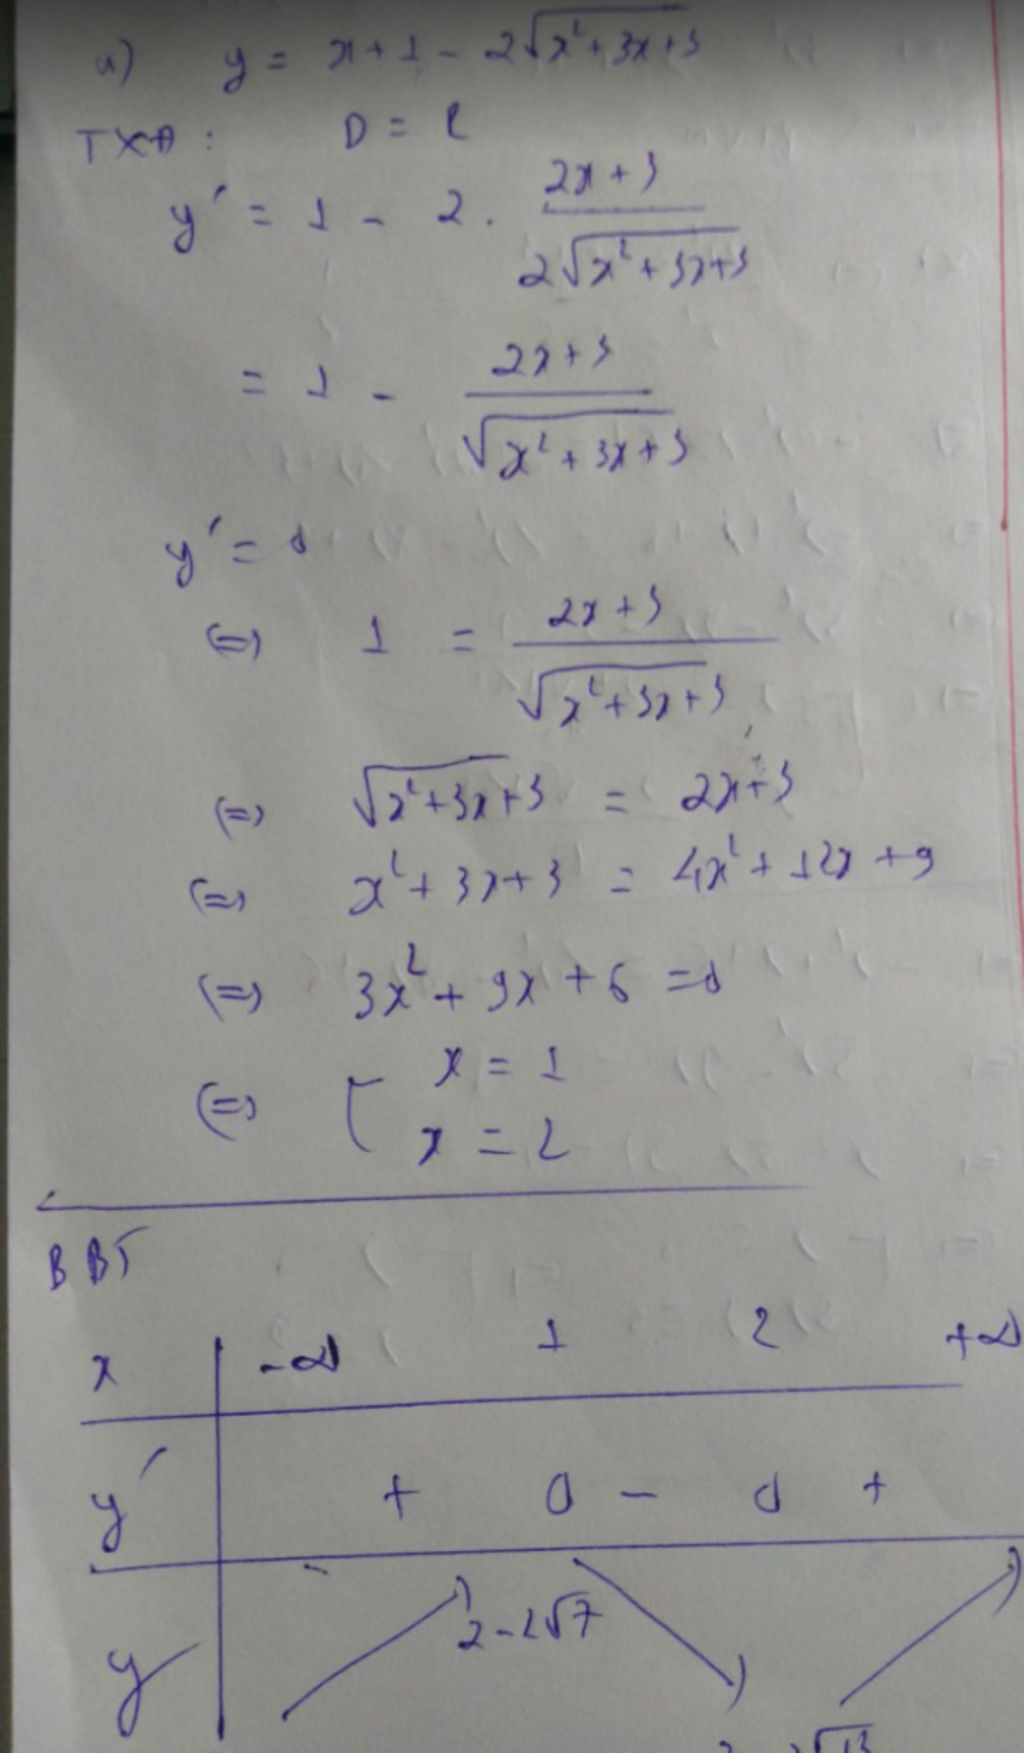 a) y = x + 1 - 2√(x² + 3x + 3)
TXĐ : D = R
y' = 1 - 2 . (2x + 3) / (2√(x² + 3x + 3))
= 1 - (2x + 3) / √(x² + 3x + 3)
y' = 0
(=) 1 = (2x + 3) / √(x² + 3x + 3)
(=) √(x² + 3x + 3) = 2x + 3
(=) x² + 3x + 3 = 4x² + 12x + 9
(=) 3x² + 9x + 6 = 0
(=) [ x = 1
x = 2
BBT
x -∞ 1 2 +∞
y' + 0 - 0 +
y 2 - 2√7
√13